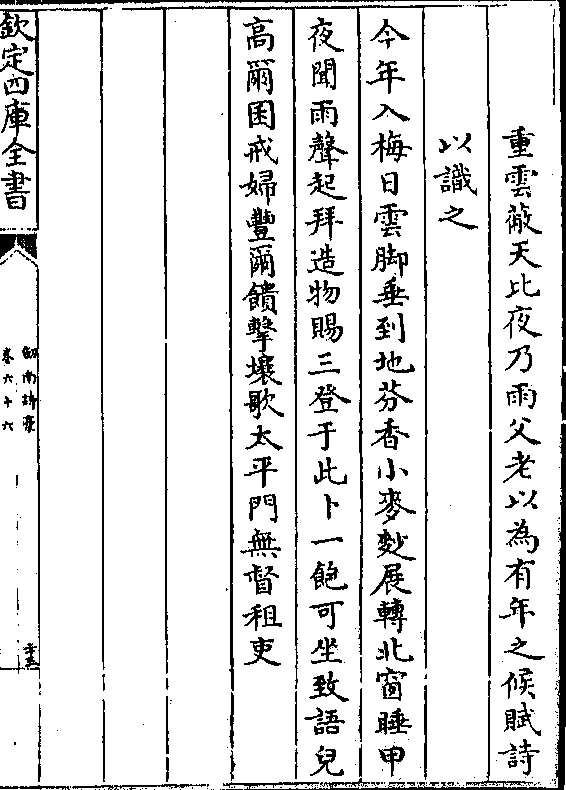 重雲蔽天比夜乃雨父老以為有年之候賦詩
以識之
今年入梅日雲脚垂到地芬香小麥麨展轉北窗睡甲
夜聞雨聲起拜造物賜三登于此卜一飽可坐致語兒
高爾囷戒婦豐爾饋擊壤歌太平門無督租吏
欽定四庫全書
劍南詩藁
卷六十六